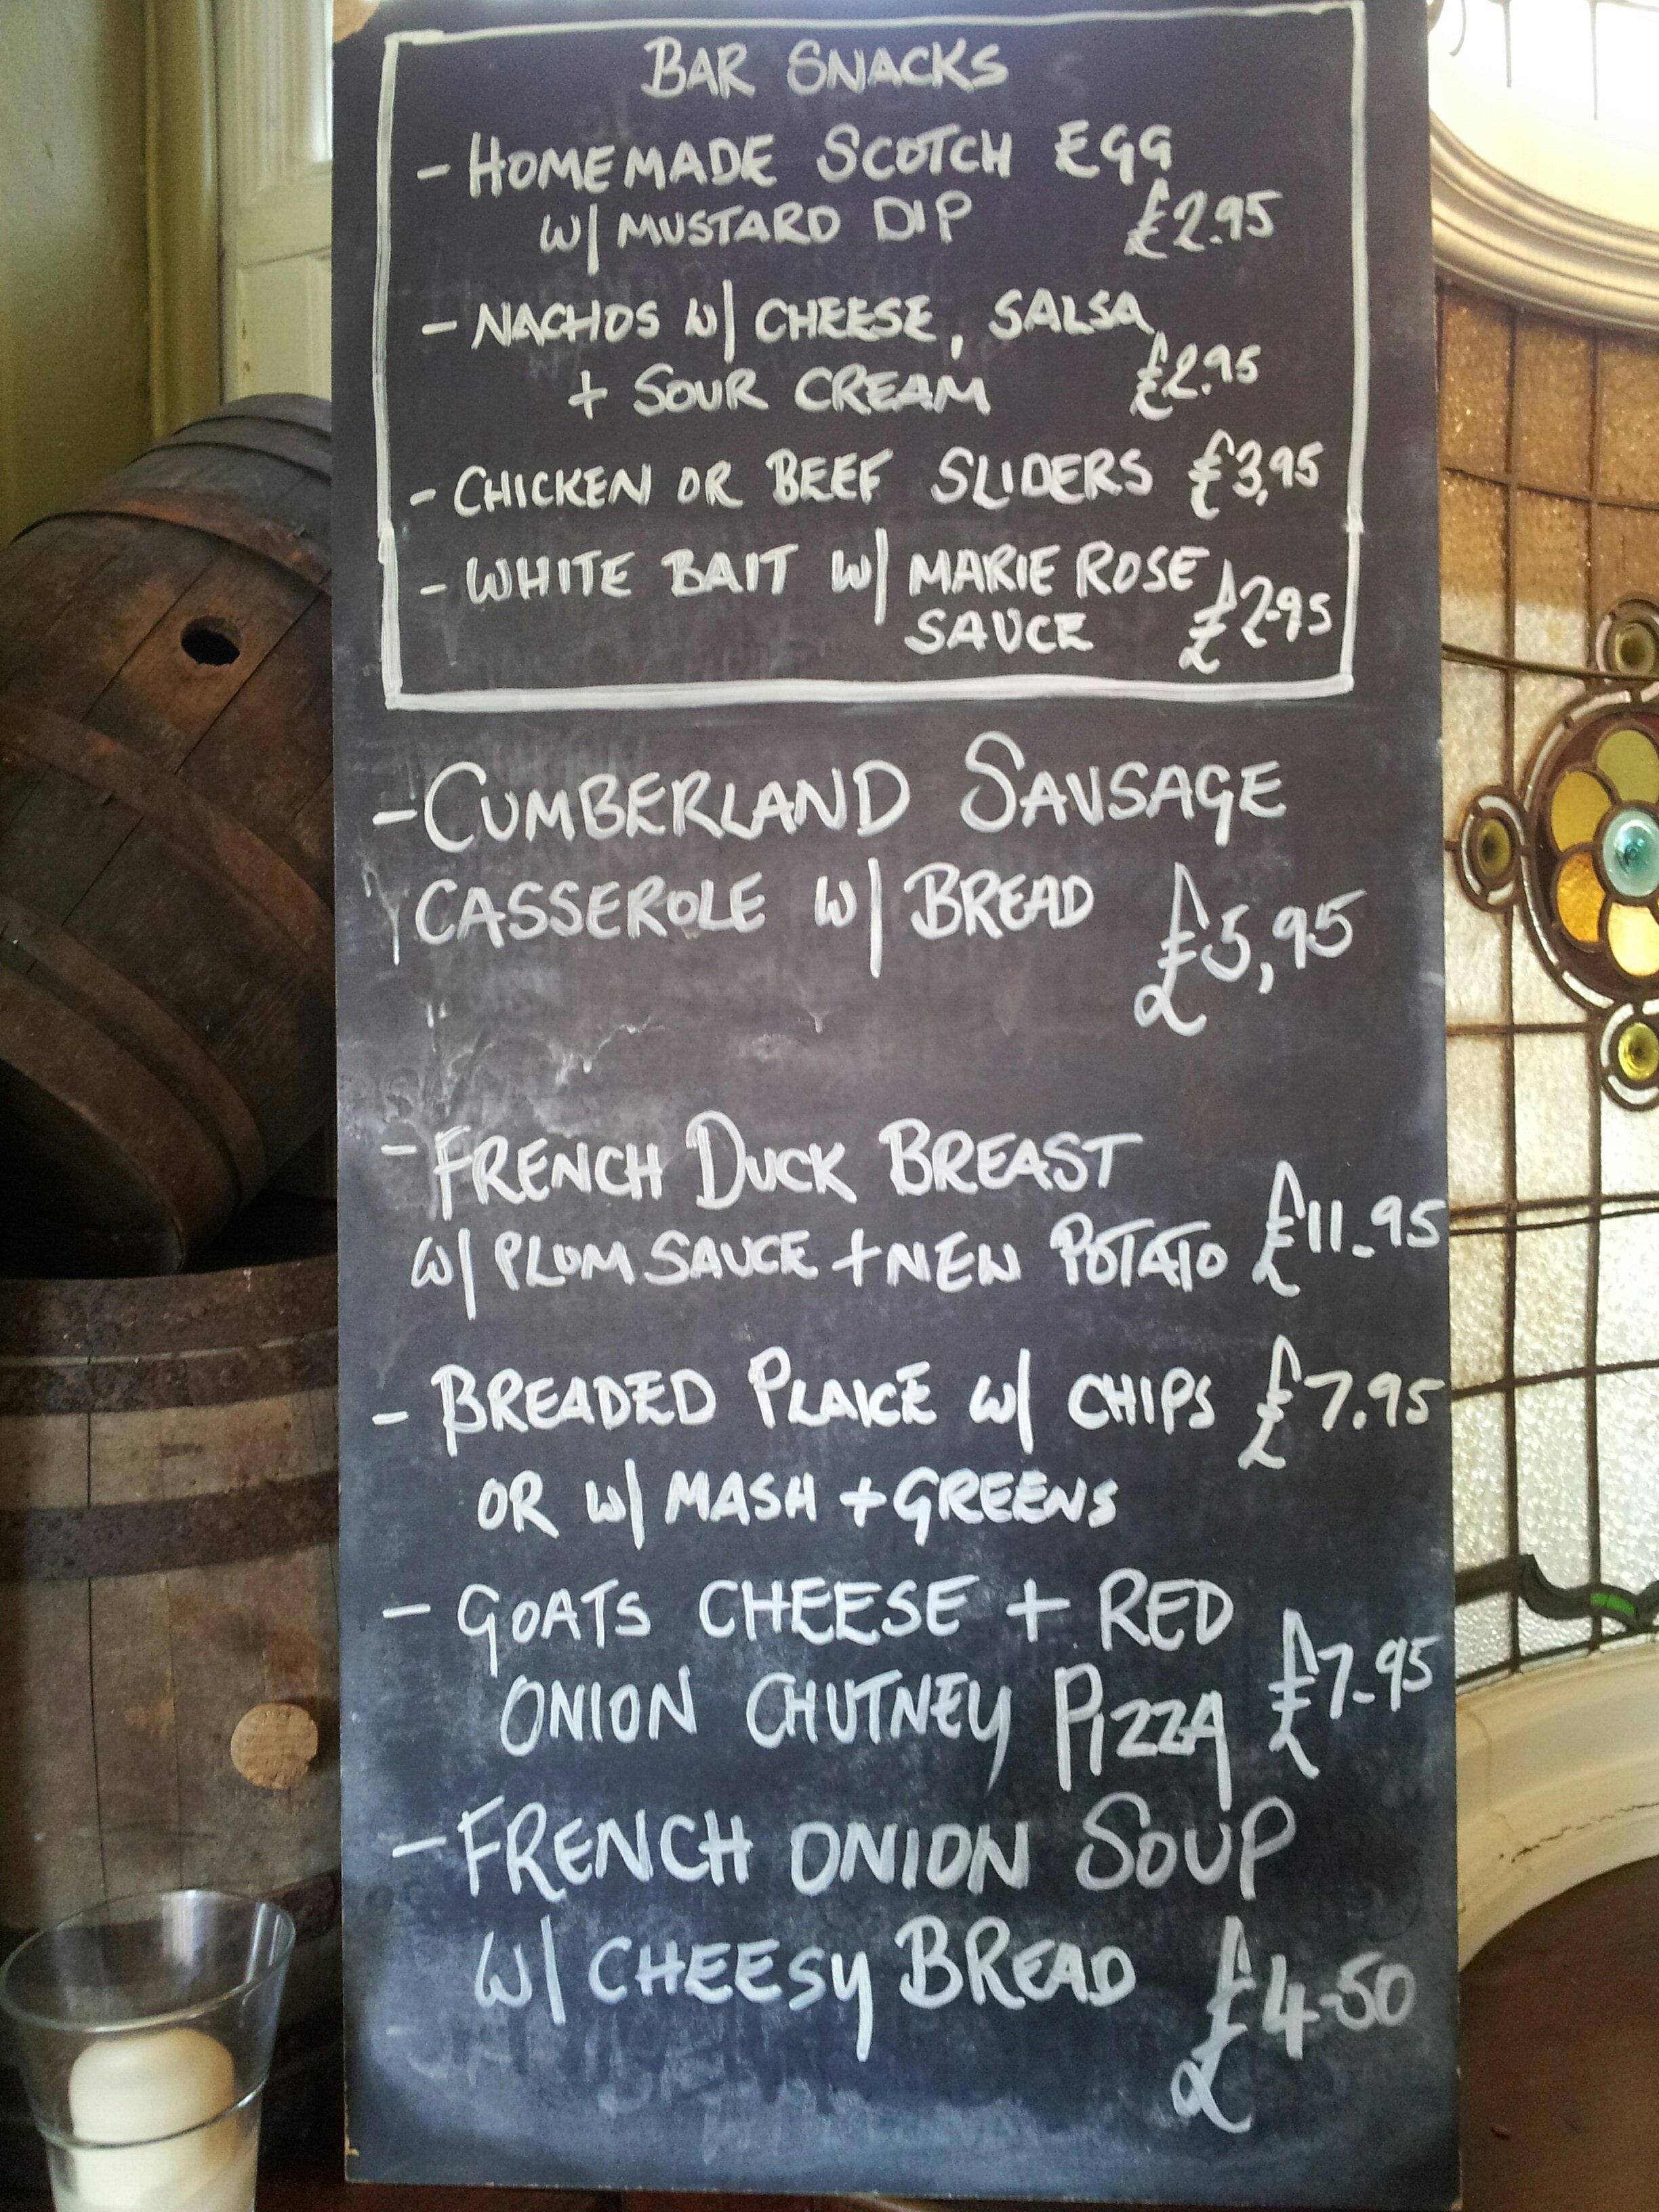 BAR SNACKS
- HOMEMADE SCOTCH EGG
W/ MUSTARD DIP £2.95
- NACHOS W/ CHEESE, SALSA
+ SOUR CREAM £2.95
- CHICKEN OR BEEF SLIDERS £3,95
- WHITE BAIT W/ MARIE ROSE
SAUCE £2.95
- CUMBERLAND SAUSAGE
CASSEROLE W/ BREAD £5,95
- FRENCH DUCK BREAST
W/ PLUM SAUCE + NEW POTATO £11.95
- BREADED PLAICE W/ CHIPS £7.95
OR W/ MASH + GREENS
- GOATS CHEESE + RED
ONION CHUTNEY PIZZA £7.95
- FRENCH ONION SOUP
W/ CHEESY BREAD £4.50